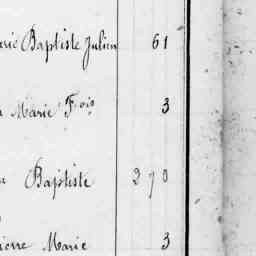 Baptiste Julien 61
Marie Fois 3
Baptiste 270
Pierre Marie 3